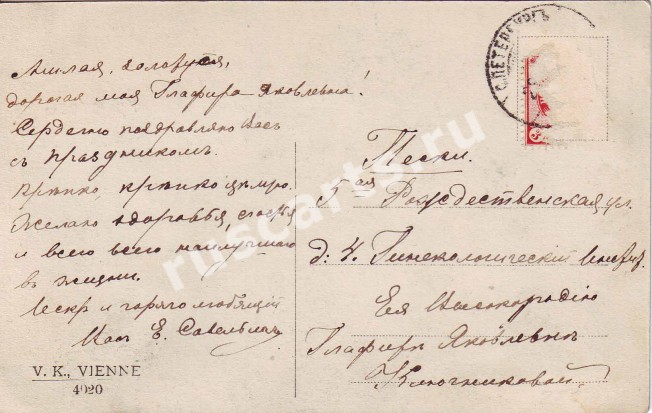 Милая, золотая,
дорогая моя Глафира Яковлевна!
Сердечно поздравляю Васъ
съ праздникомъ.
Крѣпко крѣпко цѣлую.
Желаю здоровья, счастья
и всего всего наилучшаго
въ жизни.
и горячо любящій
Васъ Е.
V. K., VIENNE
4020
С.ПЕТЕРБУРГЪ
3
Пески.
Рождественская ул.
д. 4. Гинекологический
Ея Высокородію
Глафирѣ Яковлевнѣ
Ключниковой.
ruscarts.ru